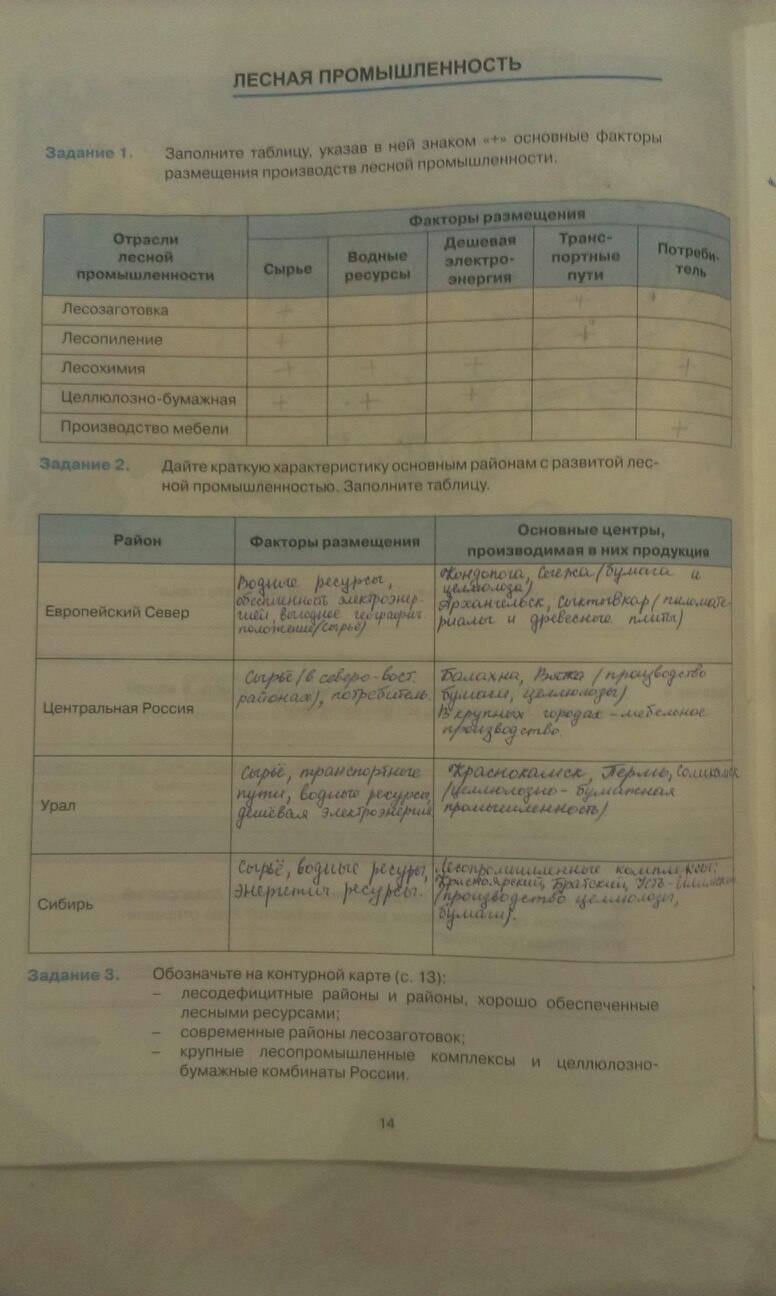 ЛЕСНАЯ ПРОМЫШЛЕННОСТЬ
Задание 1. Заполните таблицу, указав в ней знаком «+» основные факторы
размещения производств лесной промышленности.
Отрасли
лесной
промышленности
Факторы размещения
Сырье
Водные
ресурсы
Дешевая
электро-
энергия
Транс-
портные
пути
Потреби-
тель
Лесозаготовка + +
Лесопиление + +
Лесохимия + + + +
Целлюлозно-бумажная + + +
Производство мебели +
Задание 2. Дайте краткую характеристику основным районам с развитой лес-
ной промышленностью. Заполните таблицу.
Район
Факторы размещения
Основные центры,
производимая в них продукция
Европейский Север
Водные ресурсы,
обеспленность электроэнер-
гией, выгодное географич.
положение(сырьё)
Кондопога, Сыежа (бумага и
целлюлоза)
Архангельск, Сыктывкар (пиломате-
риалы и древесные плиты)
Центральная Россия
Сырьё (в северо-вост.
районах), потребитель.
Балахна, Вятка (производство
бумаги, целлюлозы)
В крупных городах-мебельное
производство.
Урал
Сырьё, транспортные
пути, водные ресурсы,
дешёвая электроэнергия
Краснокамск, Пермь, Соликамск
(целлюлозно-бумажная
промышленность)
Сибирь
Сырьё, водные ресуры,
энергетич. ресурсы.
Лесопромышленные комплексы:
Красноярский, Братский, Усть-Илимский
(производство целлюлозы,
бумаги).
Задание 3. Обозначьте на контурной карте (с. 13):
– лесодефицитные районы и районы, хорошо обеспеченные
лесными ресурсами;
– современные районы лесозаготовок;
– крупные лесопромышленные комплексы и целлюлозно-
бумажные комбинаты России.
14